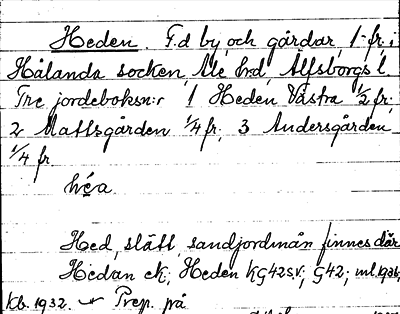 Heden. F.d by och gårdar, 1 fr. i
Hålanda socken, Ale hrd, Älfsborgs l.
Tre jordeboksn:r 1 Heden Västra 1/2 fr;
2 Mattsgården 1/4 fr; 3 Andersgården
1/4 fr
héa
Hed, slätt, sandjordmån finnes där
Hedan ek; Heden kG42sv; G42; ml.1936;
kb. 1932. Prep. på